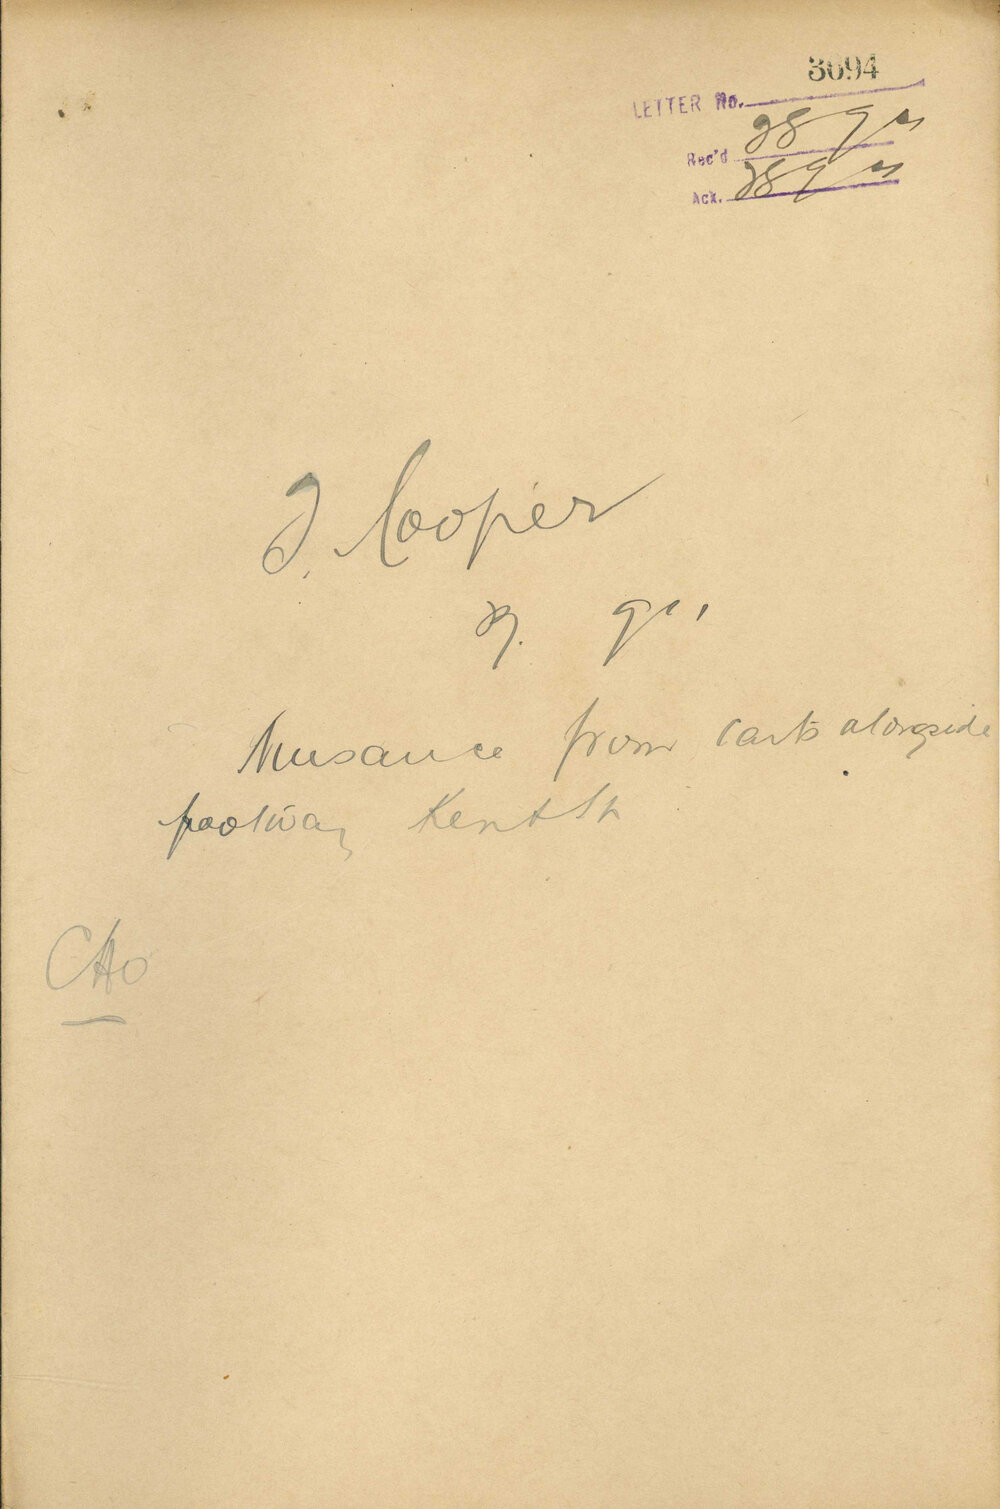 3694
LETTER No.
Rec'd 28 9
Ack. 28 9
J. Cooper
Nuisance from carts alongside
footway Kent St
CHO